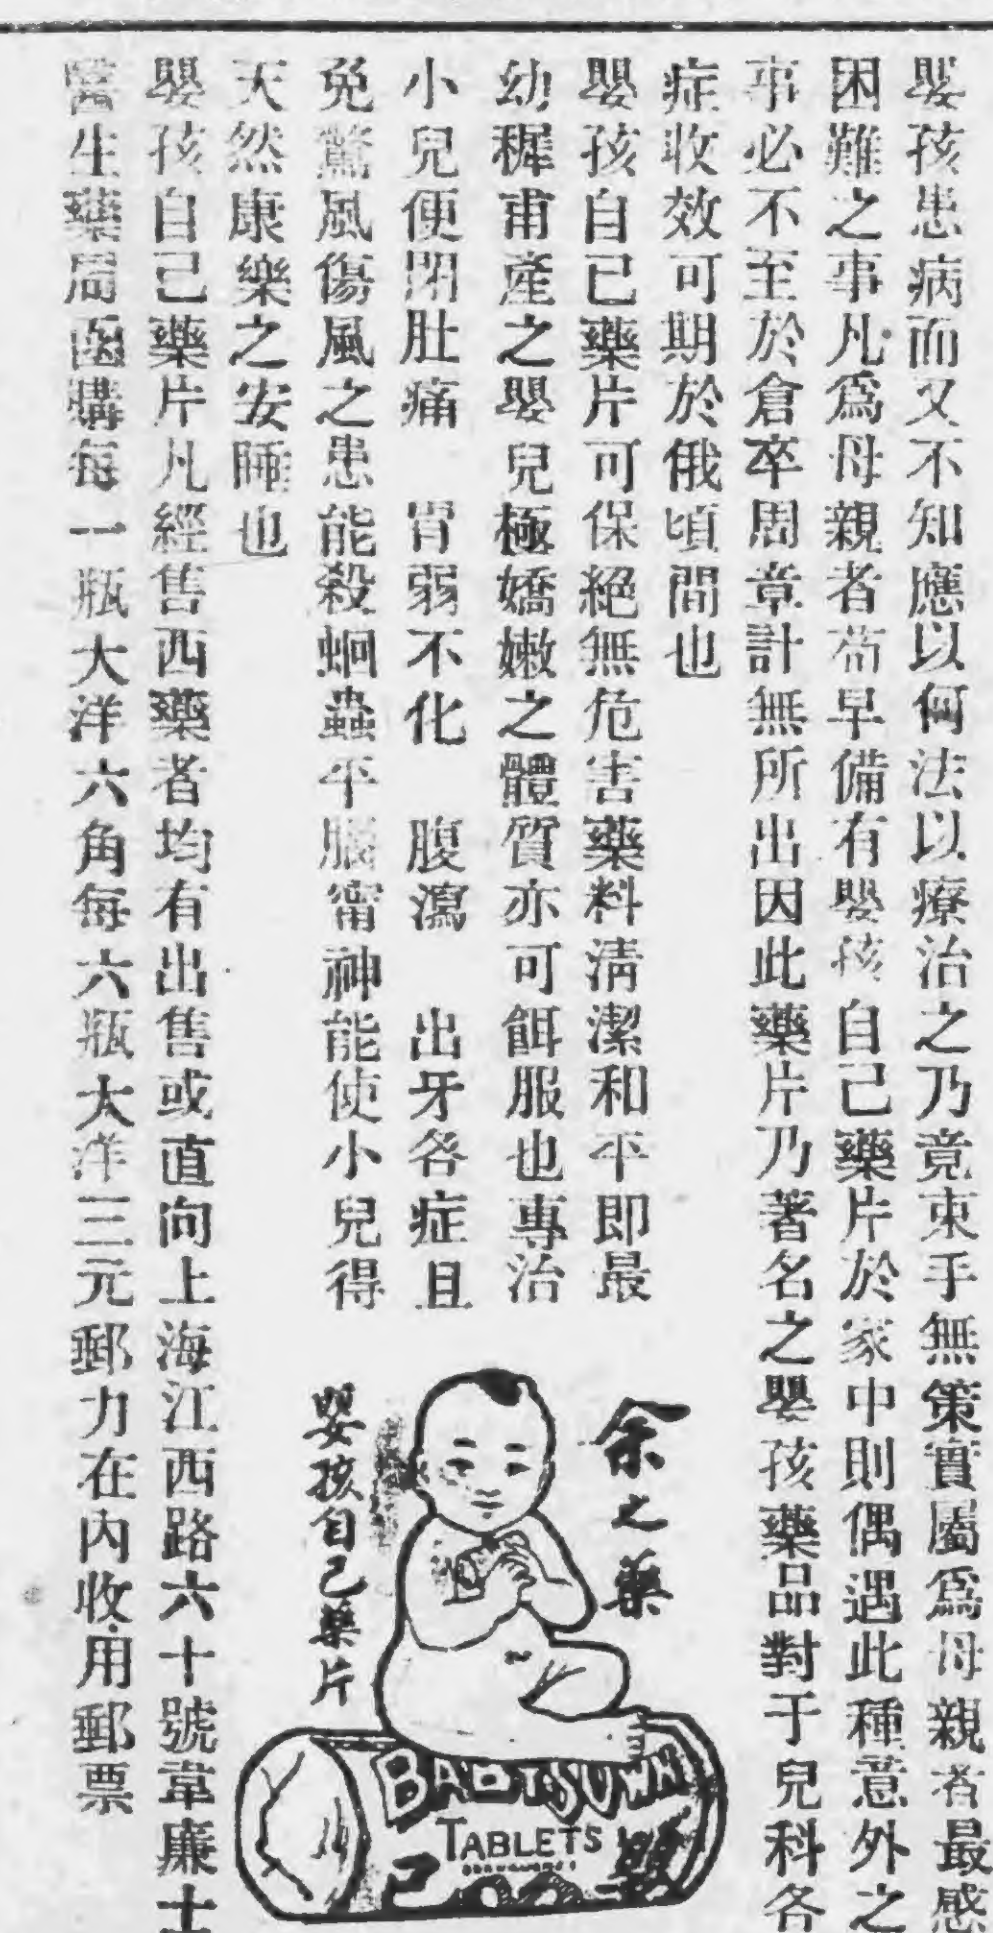 嬰孩患病而又不知應以何法以療治之乃竟束手無策實屬爲母親者最感
困難之事凡爲母親者苟早備有嬰孩自己藥片於家中則偶遇此種意外之
事必不至於倉卒周章計無所出因此藥片乃著名之嬰孩藥品對于兒科各
症收效可期於俄頃間也
嬰孩自已藥片可保絕無危害藥料淸潔和平即最
幼穉甫產之嬰兒極嬌嫩之體質亦可餌服也專治
小兒便閉肚痛　胃弱不化　腹瀉　出牙各症且
免驚風傷風之患能殺蛔蟲平腦甯神能使小兒得
天然康樂之安睡也
嬰孩自己藥片凡經售西藥者均有出售或直向上海江西路六十號韋廉士
醫生藥局函購每一瓶大洋六角每六瓶大洋三元郵力在內收用郵票
余之藥
嬰孩自己藥片
TABLETS
己